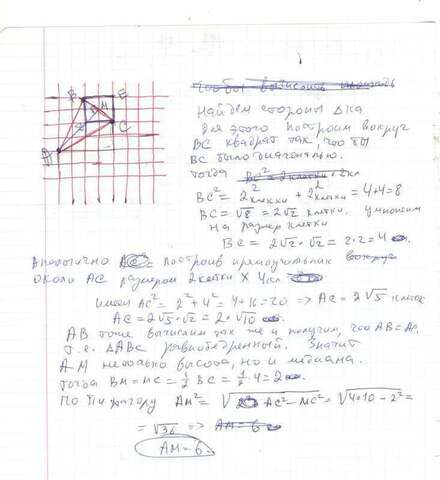 B E
M
K
C
A
чтобы вычислить площадь
Найдем стороны Δка
Для этого построим вокруг
BC квадрат так, что бы
BC было диагональю.
Тогда BC² = 2клетки + 2кл
BC² = 2² клетки + 2² клетки = 4+4=8
BC = √8 = 2√2 клетки. Умножим
на размер клетки
BC = 2√2·√2 = 2·2=4
Аналогично построив прямоугольник вокруг
около AC размером 2 клетки × 4 кл.
имеем AC² = 2²+4² = 4+16=20 => AC = 2√5 клеток
AC = 2√5·√2 = 2·√10
AB тоже вычислим так же и получим, что AB=AC.
т.е. ΔABC равнобедренный. Значит
AM не только высота, но и медиана.
Тогда BM=MC = 1/2 BC = 1/2·4=2
По Пифагору AM² = √ AC² - MC² = √4·10 - 2² =
= √36 => AM = 6
AM=6.